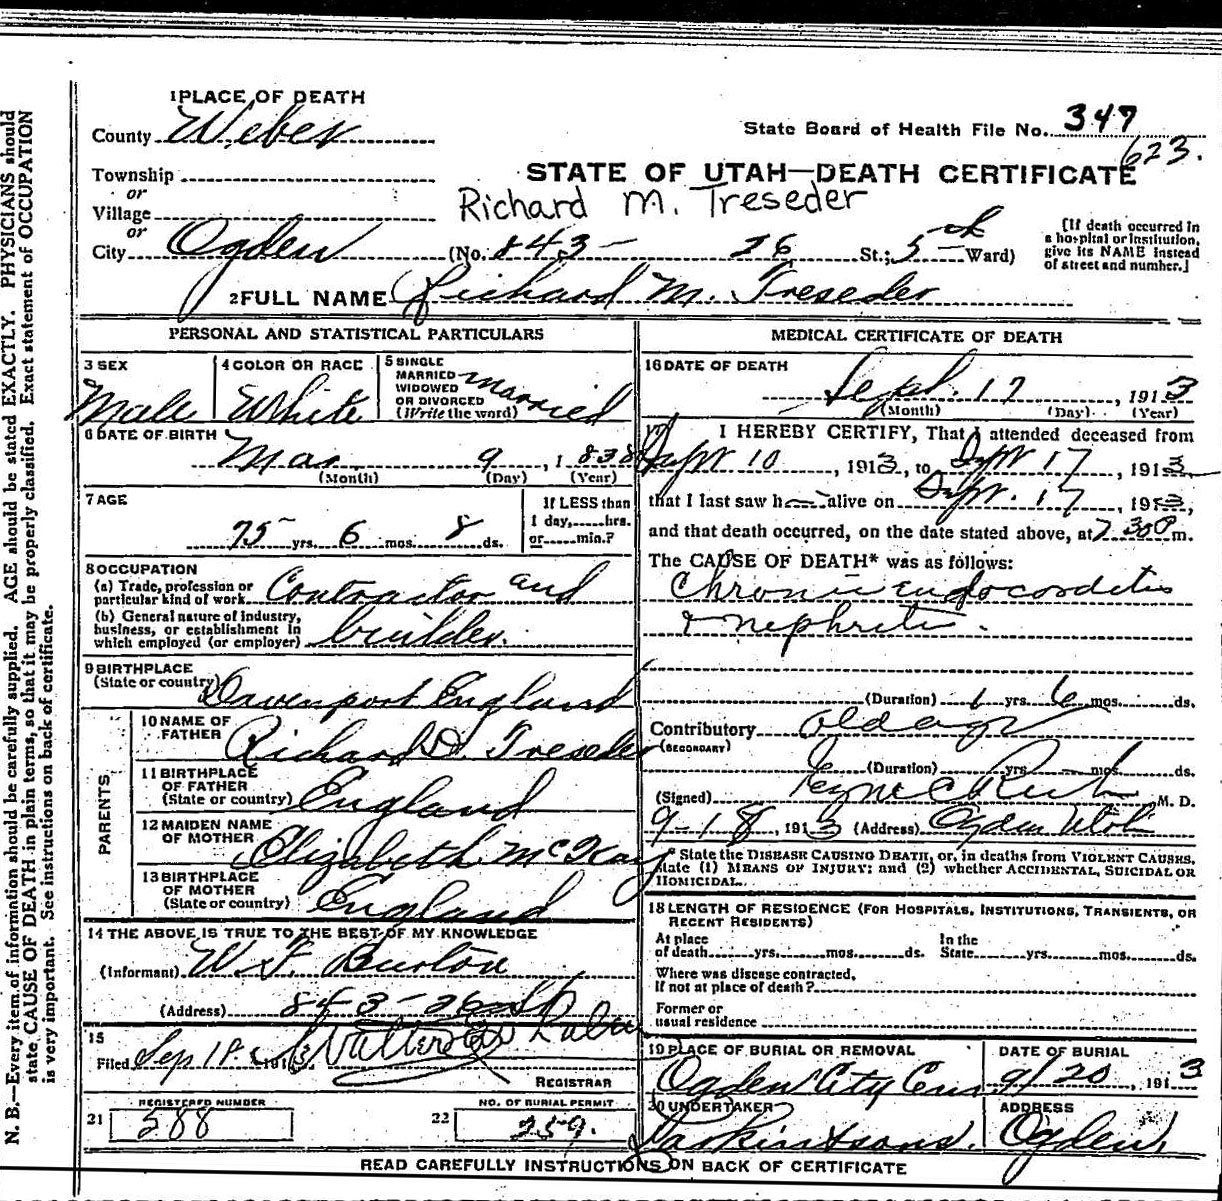 1 PLACE OF DEATH
County Weber
State Board of Health File No. 347
623.
Township
or
Village
or
City Ogden
STATE OF UTAH—DEATH CERTIFICATE
Richard M. Treseder
(No. 843- 26 St.; 5th Ward)
[If death occurred in a hospital or institution, give its NAME instead of street and number.]
2 FULL NAME Richard M. Treseder
PERSONAL AND STATISTICAL PARTICULARS
3 SEX
Male
4 COLOR OR RACE
White
5 SINGLE
MARRIED
WIDOWED
OR DIVORCED
(Write the word)
Married
6 DATE OF BIRTH
Mar 9, 1838
(Month) (Day) (Year)
7 AGE
75 yrs. 6 mos. 8 ds.
If LESS than
1 day,......hrs.
or......min.?
8 OCCUPATION
(a) Trade, profession or
particular kind of work
Contractor and
(b) General nature of industry,
business, or establishment in
which employed (or employer)
builder.
9 BIRTHPLACE
(State or country)
Davenport England
PARENTS
10 NAME OF
FATHER
Richard D. Treseder
11 BIRTHPLACE
OF FATHER
(State or country)
England
12 MAIDEN NAME
OF MOTHER
Elizabeth McKay
13 BIRTHPLACE
OF MOTHER
(State or country)
England
14 THE ABOVE IS TRUE TO THE BEST OF MY KNOWLEDGE
(Informant) W. F. Burton
(Address) 843-26th
15
Filed Sep 18, 1913 Walter
REGISTRAR
REGISTERED NUMBER
21 588
NO. OF BURIAL PERMIT
22 259.
MEDICAL CERTIFICATE OF DEATH
16 DATE OF DEATH
Sept. 17, 1913
(Month) (Day) (Year)
17 I HEREBY CERTIFY, That I attended deceased from
Sept 10, 1913, to Sept 17, 1913
that I last saw h alive on Sept. 17, 1913,
and that death occurred, on the date stated above, at 7 30 P.m.
The CAUSE OF DEATH* was as follows:
Chronic endocarditis
& nephritis.
(Duration) 1 yrs. 6 mos. ds.
Contributory old age
(SECONDARY)
(Duration) yrs. mos. ds.
(Signed) M. D.
9-18, 1913 (Address) Ogden Utah
* State the DISEASE CAUSING DEATH, or, in deaths from VIOLENT CAUSES,
state (1) MEANS OF INJURY; and (2) whether ACCIDENTAL, SUICIDAL OR
HOMICIDAL.
18 LENGTH OF RESIDENCE (FOR HOSPITALS, INSTITUTIONS, TRANSIENTS, OR
RECENT RESIDENTS)
At place
of death yrs. mos. ds.
In the
State yrs. mos. ds.
Where was disease contracted,
If not at place of death?
Former or
usual residence
19 PLACE OF BURIAL OR REMOVAL
Ogden City Cem
DATE OF BURIAL
9/20, 1913
20 UNDERTAKER
Larkin & sons.
ADDRESS
Ogden
READ CAREFULLY INSTRUCTIONS ON BACK OF CERTIFICATE
N. B.—Every item of information should be carefully supplied. AGE should be stated EXACTLY. PHYSICIANS should
state CAUSE OF DEATH in plain terms, so that it may be properly classified. Exact statement of OCCUPATION
is very important. See instructions on back of certificate.